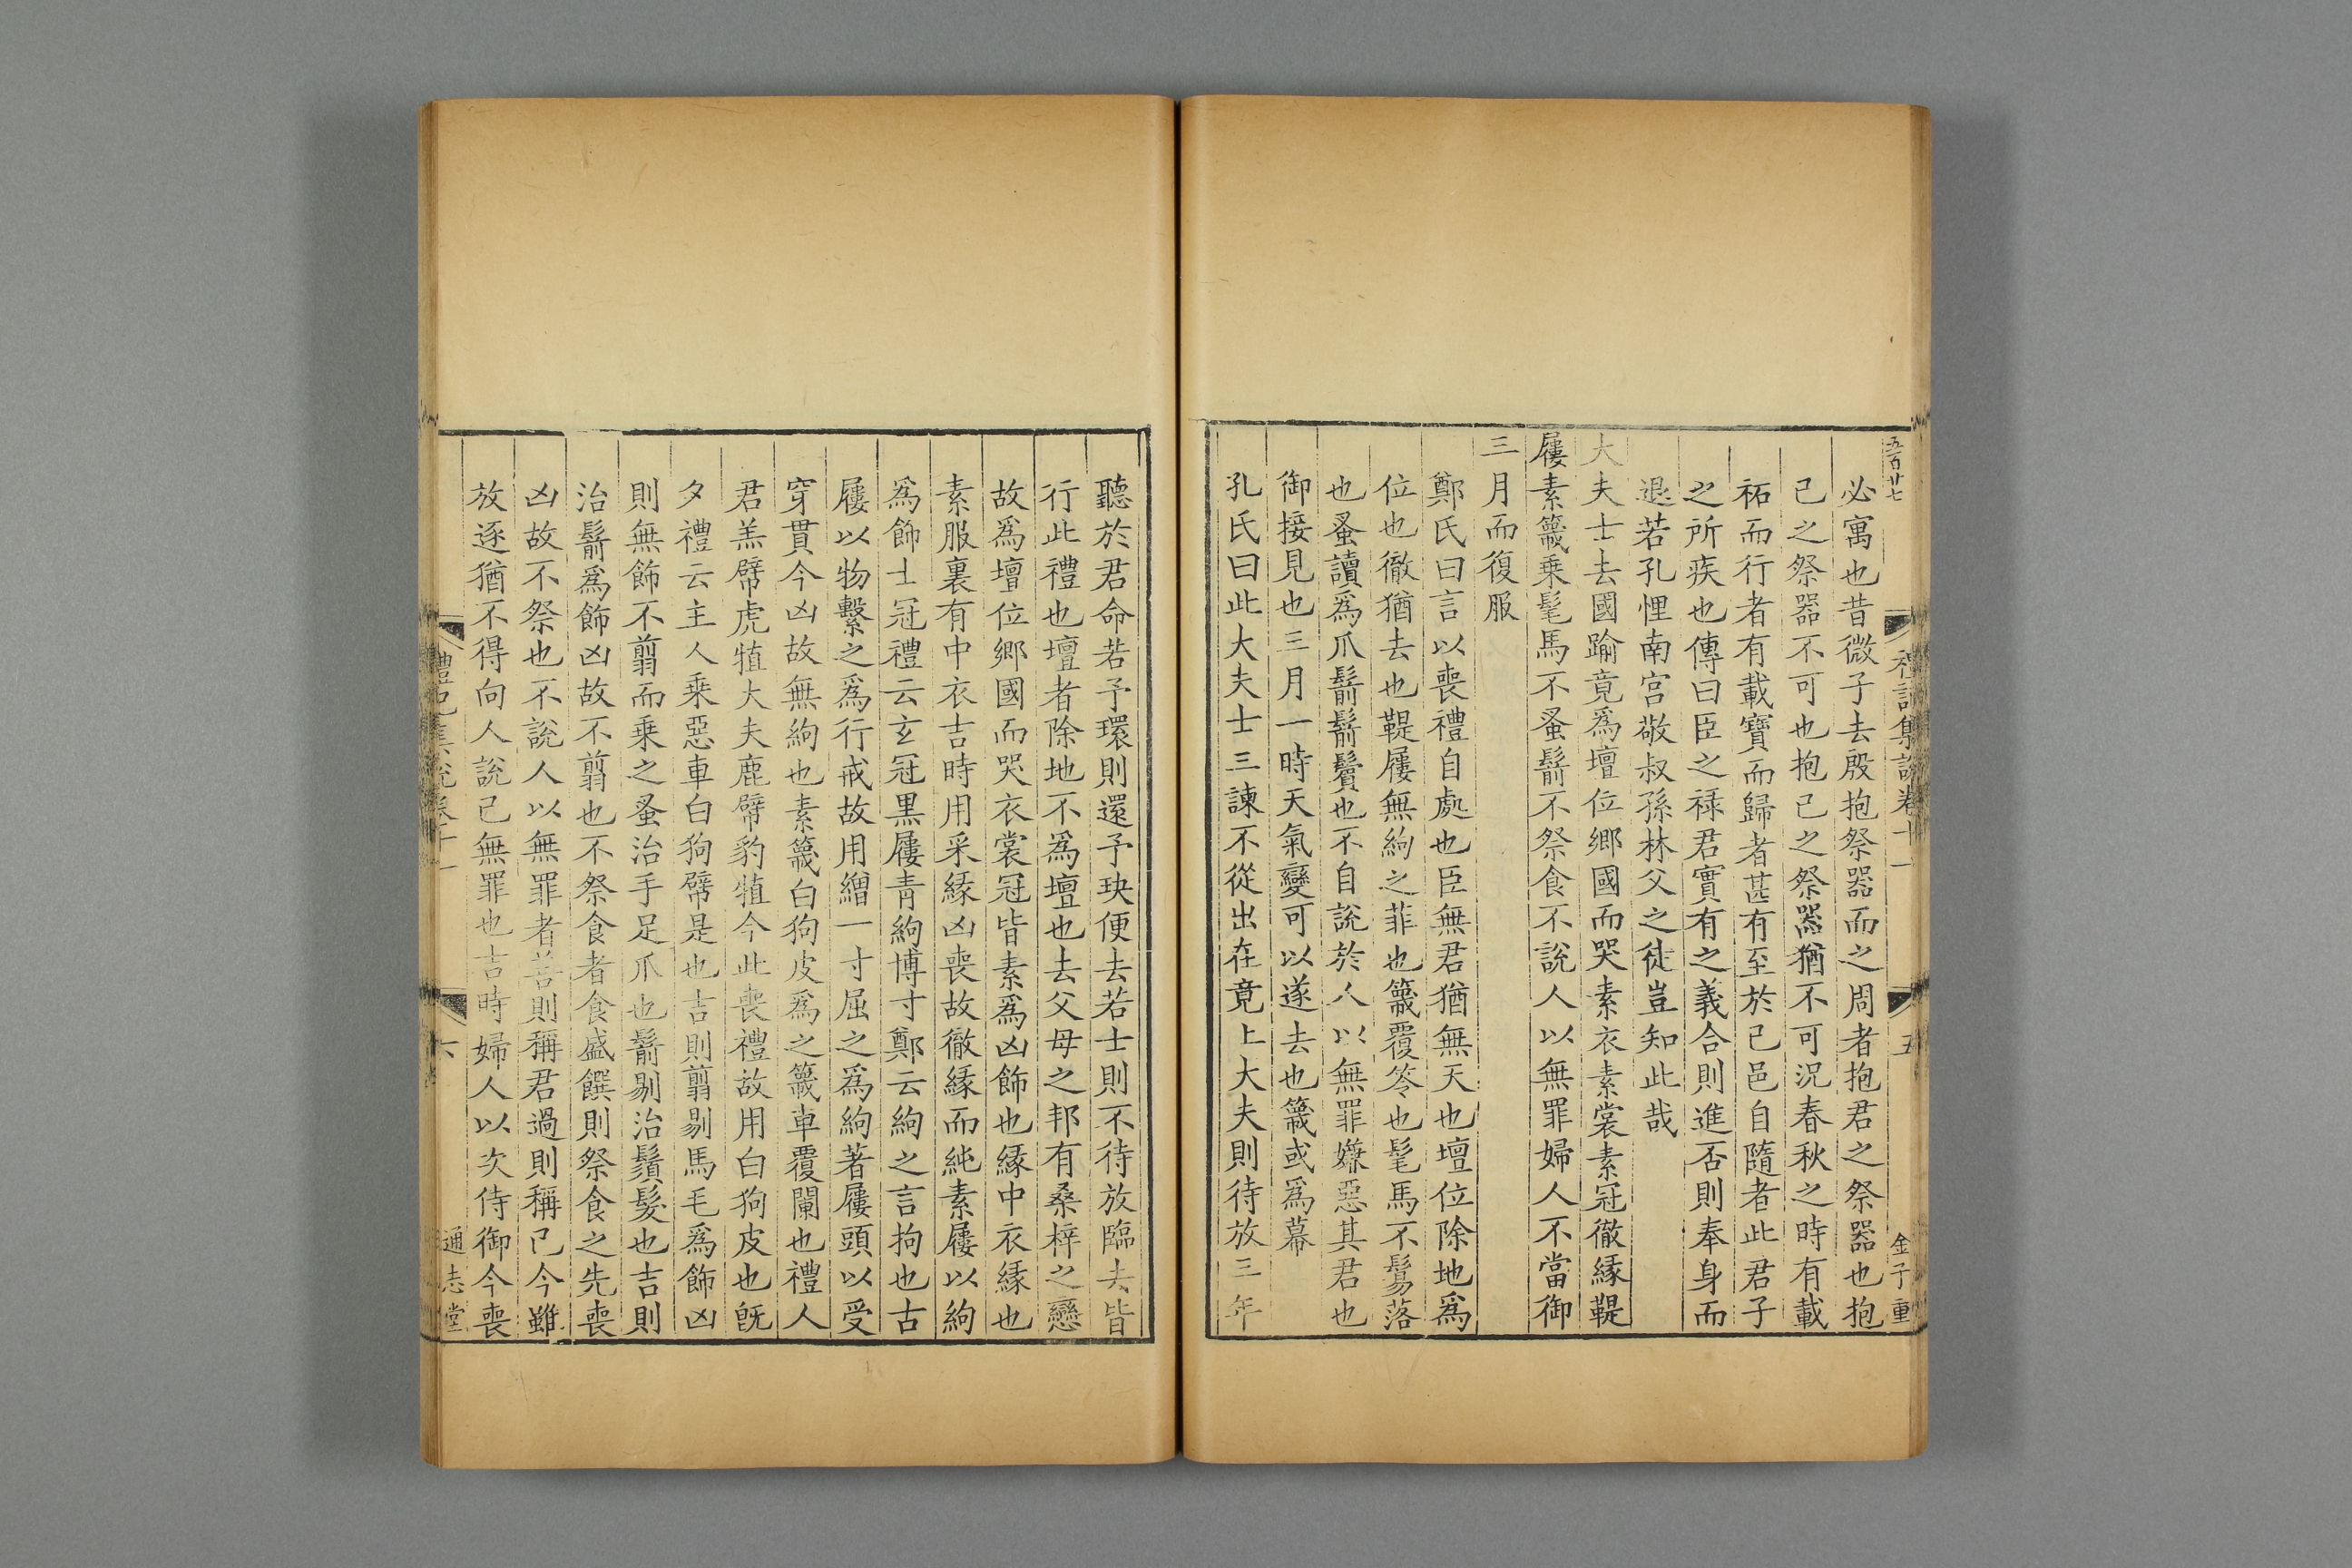 五百廿七
禮記集說卷十一 五 金子重
必寓也昔微子去殷抱祭器而之周者抱君之祭器也抱
己之祭器不可也抱己之祭器猶不可況春秋之時有載
祏而行者有載寶而歸者甚有至於己邑自隨者此君子
之所疾也傳曰臣之祿君實有之義合則進否則奉身而
退若孔悝南宮敬叔孫林父之徒豈知此哉
大夫士去國踰竟爲壇位鄉國而哭素衣素裳素冠徹緣鞮
屨素簚乘髦馬不蚤鬋不祭食不說人以無罪婦人不當御
三月而復服
鄭氏曰言以喪禮自處也臣無君猶無天也壇位除地爲
位也徹猶去也鞮屨無絇之菲也簚覆笭也髦馬不鬄落
也蚤讀爲爪鬋鬋鬢也不自說於人以無罪嫌惡其君也
御接見也三月一時天氣變可以遂去也簚或爲幕
孔氏曰此大夫士三諫不從出在竟上大夫則待放三年
聽於君命若予環則還予玦便去若士則不待放臨去皆
行此禮也壇者除地不爲壇也去父母之邦有桑梓之戀
故爲壇位鄉國而哭衣裳冠皆素爲凶飾也緣中衣緣也
素服裏有中衣吉時用采緣凶喪故徹緣而純素屨以絇
爲飾士冠禮云玄冠黑屨青絇博寸鄭云絇之言拘也古
屨以物繫之爲行戒故用繒一寸屈之爲絇著屨頭以受
穿貫今凶故無絇也素簚白狗皮爲之簚車覆闌也禮人
君羔幦虎犆大夫鹿幦豹犆今此喪禮故用白狗皮也旣
夕禮云主人乘惡車白狗幦是也吉則翦剔馬毛爲飾凶
則無飾不翦而乘之蚤治手足爪也鬋剔治鬚髮也吉則
治鬋爲飾凶故不翦也不祭食者食盛饌則祭食之先喪
凶故不祭也不說人以無罪者善則稱君過則稱己今雖
放逐猶不得向人說己無罪也吉時婦人以次侍御今喪
禮記集說卷十一 六 通志堂